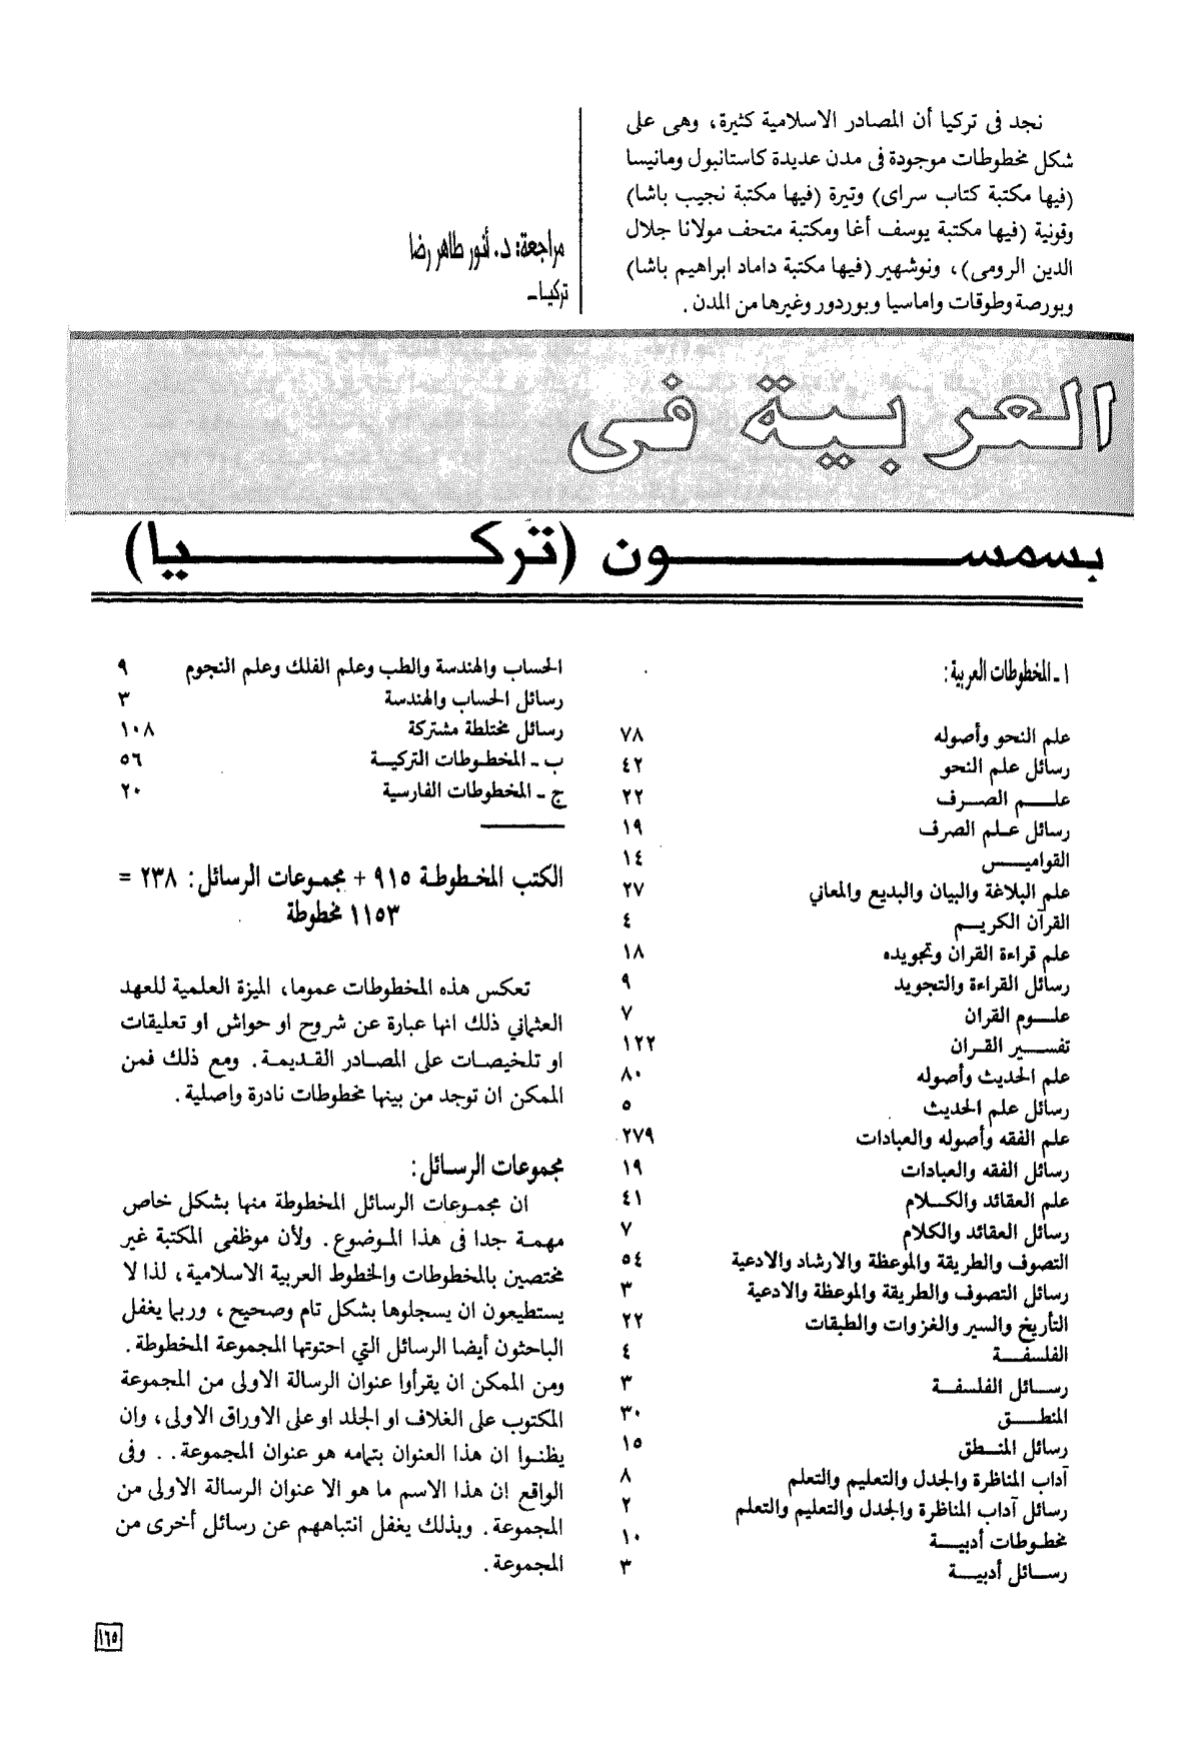 نجد فى تركيا أن المصادر الاسلامية كثيرة، وهى على
شكل مخطوطات موجودة فى مدن عديدة كاستانبول ومانيسا
(فيها مكتبة كتاب سراى) وتيرة (فيها مكتبة نجيب باشا)
وقونية (فيها مكتبة يوسف أغا ومكتبة متحف مولانا جلال
الدين الرومى)، ونوشهير (فيها مكتبة داماد ابراهيم باشا)
وبورصة وطوقات واماسيا وبوردور وغيرها من المدن.
مراجعة: د. أنور طاهر رضا
تركيا ـ
العربية فى
بسمسون (تركيا)
ا ـ المخطوطات العربية:
علم النحو وأصوله ٧٨
رسائل علم النحو ٤٢
علم الصرف ٢٢
رسائل علم الصرف ١٩
القواميس ١٤
علم البلاغة والبيان والبديع والمعاني ٢٧
القرآن الكريم ٤
علم قراءة القران وتجويده ١٨
رسائل القراءة والتجويد ٩
علوم القران ٧
تفسير القران ١٢٢
علم الحديث وأصوله ٨٠
رسائل علم الحديث ٥
علم الفقه وأصوله والعبادات ٢٧٩
رسائل الفقه والعبادات ١٩
علم العقائد والكلام ٤١
رسائل العقائد والكلام ٧
التصوف والطريقة والموعظة والارشاد والادعية ٥٤
رسائل التصوف والطريقة والموعظة والادعية ٣
التأريخ والسير والغزوات والطبقات ٢٢
الفلسفة ٤
رسائل الفلسفة ٣
المنطق ٣٠
رسائل المنطق ١٥
آداب المناظرة والجدل والتعليم والتعلم ٨
رسائل آداب المناظرة والجدل والتعليم والتعلم ٢
مخطوطات أدبية ١٠
رسائل أدبية ٣
الحساب والهندسة والطب وعلم الفلك وعلم النجوم ٩
رسائل الحساب والهندسة ٣
رسائل مختلطة مشتركة ١٠٨
ب ـ المخطوطات التركية ٥٦
ج ـ المخطوطات الفارسية ٢٠
الكتب المخطوطة ٩١٥ + مجموعات الرسائل: ٢٣٨ =
١١٥٣ مخطوطة
تعكس هذه المخطوطات عموما، الميزة العلمية للعهد
العثماني ذلك انها عبارة عن شروح او حواش او تعليقات
او تلخيصات على المصادر القديمة. ومع ذلك فمن
الممكن ان توجد من بينها مخطوطات نادرة واصلية.
مجموعات الرسائل:
ان مجموعات الرسائل المخطوطة منها بشكل خاص
مهمة جدا فى هذا الموضوع. ولأن موظفى المكتبة غير
مختصين بالمخطوطات والخطوط العربية الاسلامية، لذا لا
يستطيعون ان يسجلوها بشكل تام وصحيح، وربما يغفل
الباحثون أيضا الرسائل التي احتوتها المجموعة المخطوطة.
ومن الممكن ان يقرأوا عنوان الرسالة الاولى من المجموعة
المكتوب على الغلاف او الجلد او على الاوراق الاولى، وان
يظنوا ان هذا العنوان بتمامه هو عنوان المجموعة.. وفى
الواقع ان هذا الاسم ما هو الا عنوان الرسالة الاولى من
المجموعة. وبذلك يغفل انتباههم عن رسائل أخرى من
المجموعة.
١٦٥